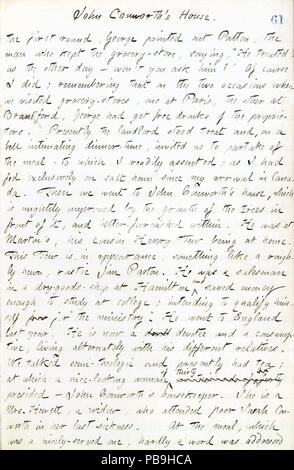 John Conworth's House.
61
the first round, George pointed out Patton, the
man who kept the grocery-store, saying, "He treated
us the other day — won't you ask him?" Of course
I did; remembering that on the two occasions when
we visited grocery-stores, one at Paris, the other at
Brantford, George had got free drinks of the proprie-
tors. Presently the landlord stood treat and, on a
bell intimating dinner-time, invited us to partake of
the meal to which I readily assented, as I had
fed exclusively on salt ham since my arrival in Cana-
da. Then we went to John Conworth's house, which
is mightily improved by the growth of the trees in
front of it, and better furnished within. He was at
Martin's, his cousin Henry Tew being at home.
This Tew is, in appearance, something like a rough-
ly hewn, rustic Jim Parton. He was a salesman
in a drygoods-shop at Hamilton and saved money
enough to study at college; intending to qualify him-
self for the ministry. He went to England
last year. He is now a devotee and a consump-
tive, living alternately with his different relatives.
We talked semi-theologic and presently had tea;
at which a nice-looking woman of thirty
presided — John Conworth's housekeeper. She is a
Mrs. Hewitt, a widow, who attended poor Sarah Con-
worth in her last sickness. At the meal, which
was a nicely-served one, hardly a word was addressed